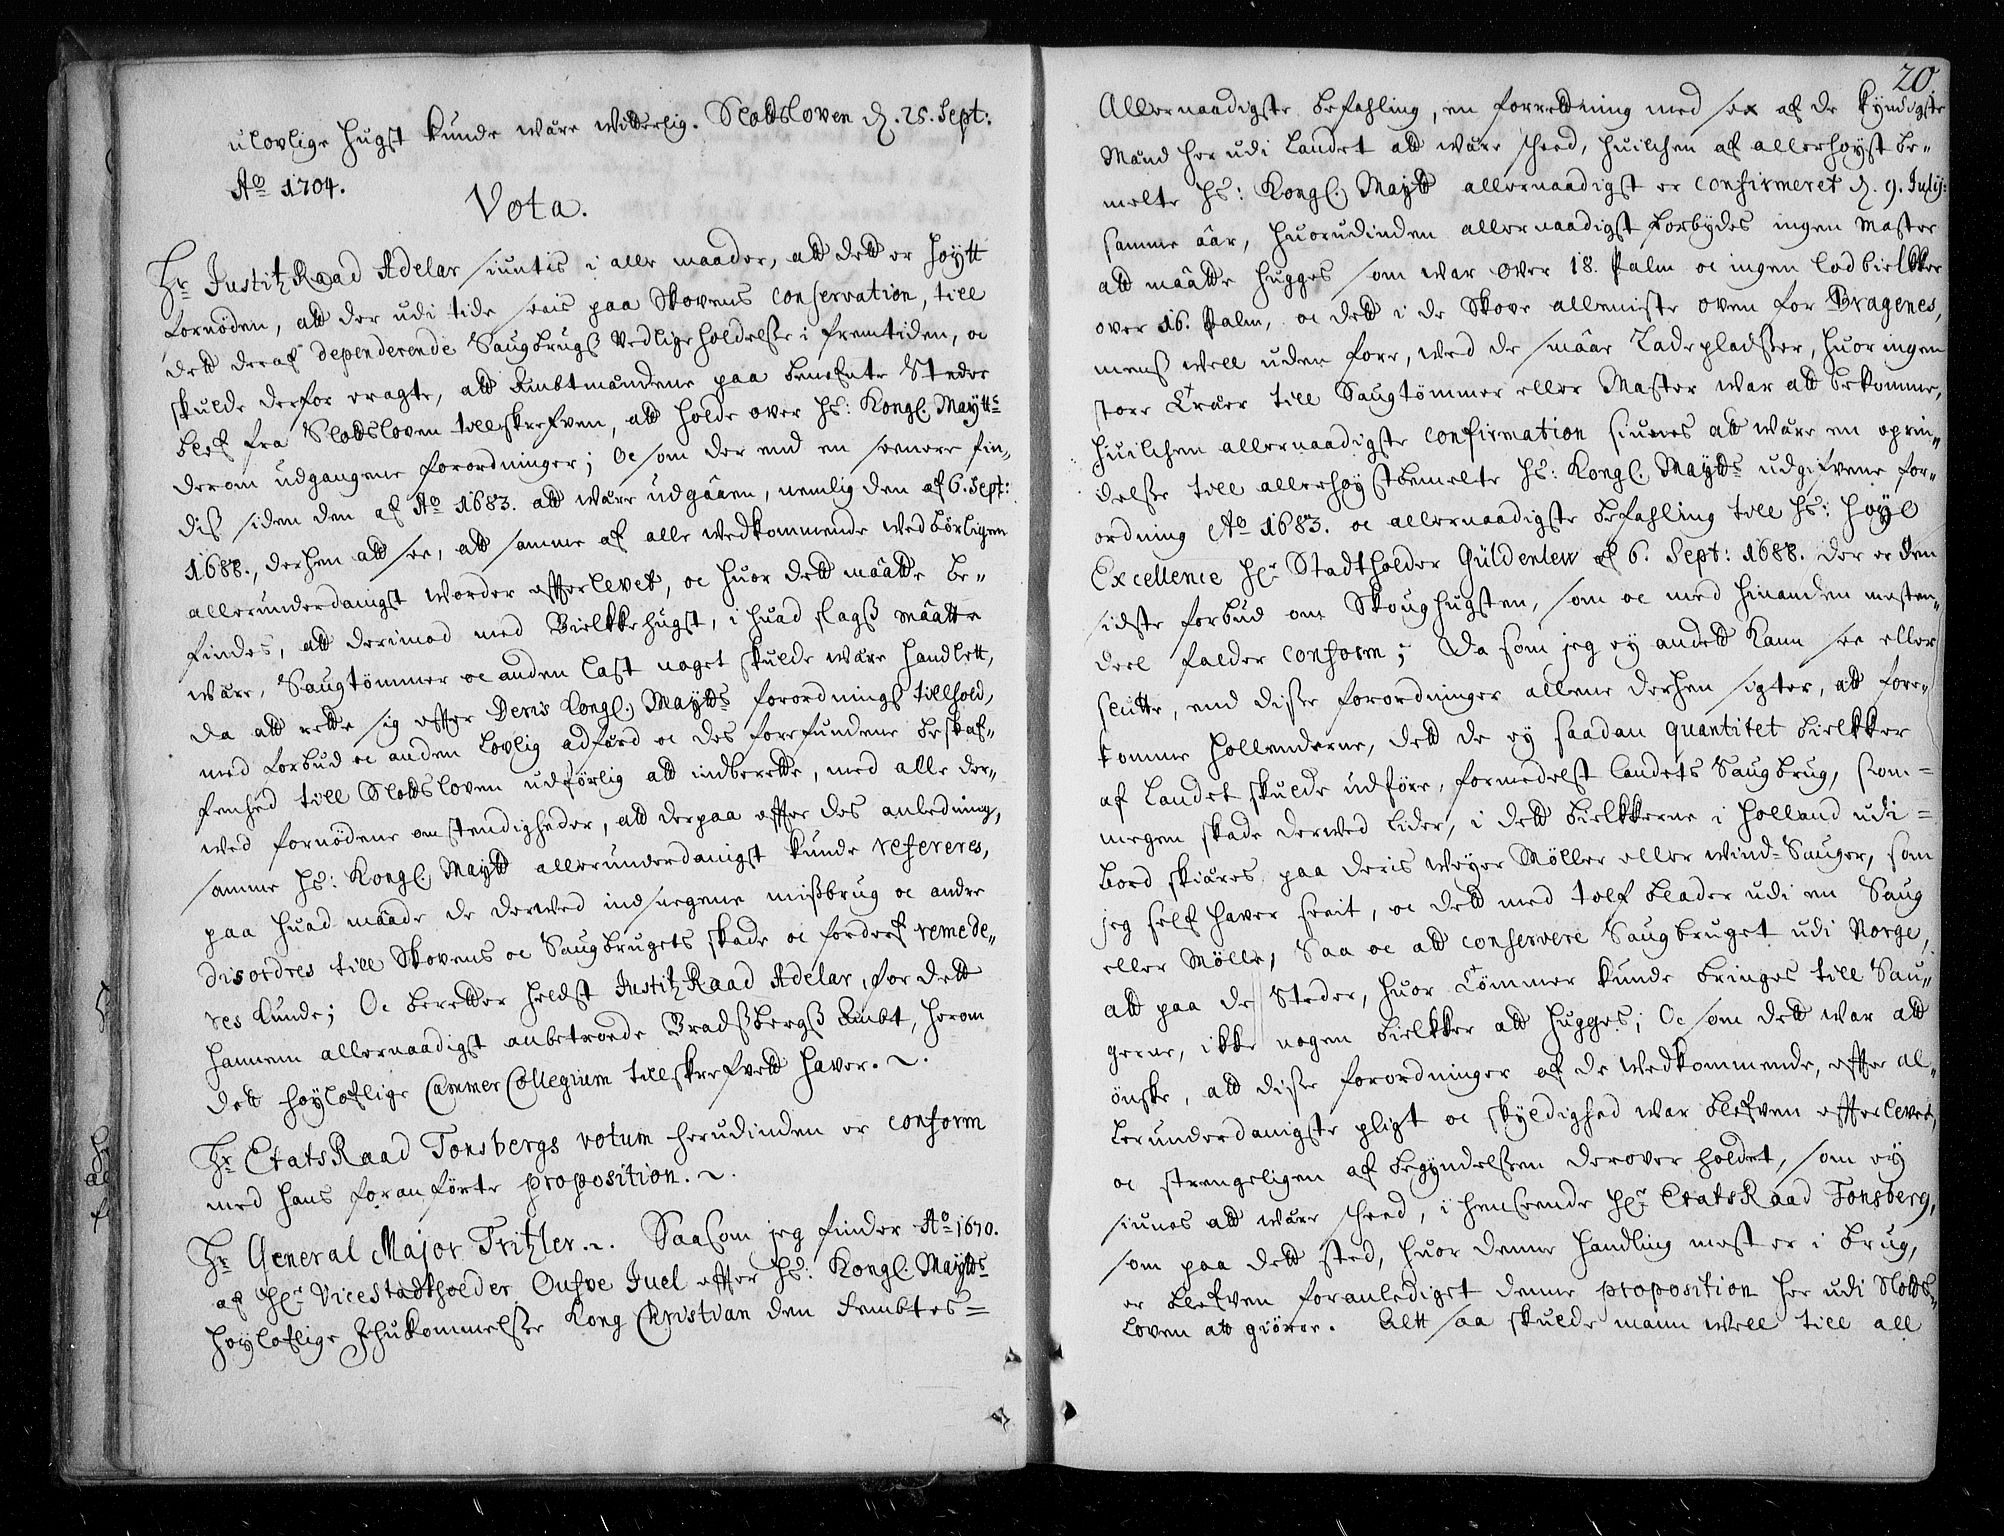 ulovlige hugst kunde være vitterlig. Slodsloven d. 25. Sept:
Ao 1704.
Vota.
Hr JustitzRaad Adelar siuntis i alle maader, att dett er høytt
fornøden, att der udi tide sees paa Skovens conservation, till
dett deraf dependerende Saugbrugs Vedligeholdelse i fremtiden, oc
skulde derfor eragte, att Ambtmændene paa benefnte Steder
blef fra Slodsloven tillskrefven, att holde over Hs: Kongl. Maytts
derom udgangene forordninger; Oc som der end en seenere fin„
dis siden den af Ao 1683. att være udgaaen, nemlig den af 6. Sept:
1688., derhen att see, att samme af alle vedkommende vedbørligen
allerunderdanigst worder efterlevet, oc huor dett maatte be„
findes, att derimod med Bielkehugst, i huad slags maatte
være, Saugtømmer oc anden last noget skulde være handlett,
da att rette sig efter Deris Kongl. Maytts forordnings tillhold,
med forbud oc anden lovlig adfærd oc des forefundene beskaf„
fenhed till Slodsloven udførlig att indberette, med alle der„
ved fornødene omstendigheder, att derpaa efter des anledning,
samme Hs: Kongl. Maytt allerunderdanigst kunde refereres,
paa huad maade de derved indsnegene misbrug oc andre
disordres till Skovens oc Saugbrugets skade oc forderf remede„
res kunde; Oc beretter heldst JustitzRaad Adelar, for dett
hannem allernaadigst anbetroede Bradsbergs Ambt, herom
dett høyloflige CammerCollegium tillskrefvett haver.
Hr EtatsRaad Tonsbergs votum herudinden er conform
med hans foranførte proposition.
Hr General Major Tritzler. Saasom jeg finder Ao 1670.
af Hr ViceStadtholder Oufve Juel efter Hs: Kongl. Maytts
høyloflige Ihukommelse Kong Christian den Fembtes=
20.
Allernaadigste befahling, en forrettning med sex af de kyndigste
Mænd her udi Landet att være scheed, huilchen af allerhøyst be„
melte Hs: Kongl. Maytt allernaadigst er confirmeret d. 9. Julij:
samme aar, huorudinden allernaadigst forbydes ingen Master
att maatte hugges som war over 18. Palm oc ingen lodbielker
over 16. Palm, oc dett i de Skove alleniste oven for Bragenes,
mens well uden fore, wed de smaae Ladepladser, huor ingen
store Træer till Saugtømmer eller Master war att bekomme,
huilchen allernaadigste confirmation siunes att være en oprin„
delse till allerhøystbemelte Hs: Kongl. Maytts udgifvene for„
ordning Ao 1683. oc allernaadigste befahling till Hs: høye
Excellence Hr Stadtholder Güldenlew af 6. Sept: 1688. der er den
sidste forbud om Skoughugsten, som oc med hinanden mesten„
deel falder conform; Da som jeg ey andett kann see eller
slutte, end disse forordninger allene derhen sigter, att fore„
komme Hollenderne, dett de ey saadan quantitet bielker
af Landet skulde udføre, formedelst landets Saugbrug, som=
megen skade derved lider, i dett bielkerne i Holland udi=
bord skiæres, paa deris weyer Møller eller wind-Sauger, som
jeg self haver seeit, oc dett med tolf blader udi en Saug
eller Mølle, Saa oc att conservere Saugbruget udi Norge,
att paa de Steder, huor Tømmer kunde bringes till Sau„
gerne, ikke nogen bielker att hugges; Oc som dett war att
ønske, att disse forordninger af de Vedkommende, efter al„
lerunderdanigste pligt oc skyldighed war blefven efterlevet,
oc strengeligen af begyndelsen derover holdet, som ey
siunes att være scheed, i henseende Hr EtatsRaad Tonsberg,
som paa dett sted, huor denne handling mest er i brug,
er blefven foranlediget denne proposition her udi Slods„
loven att giøre. Altsaa skulde mann well till all